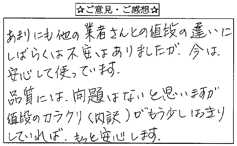 ☆ご意見・ご感想☆
あまりにも他の業者さんとの値段の違いに
しばらくは不安はありましたが、今は、
安心して使っています。
品質には、問題はないと思いますが
値段のカラクリ(内訳)がもう少しはっきり
していれば、もっと安心します。